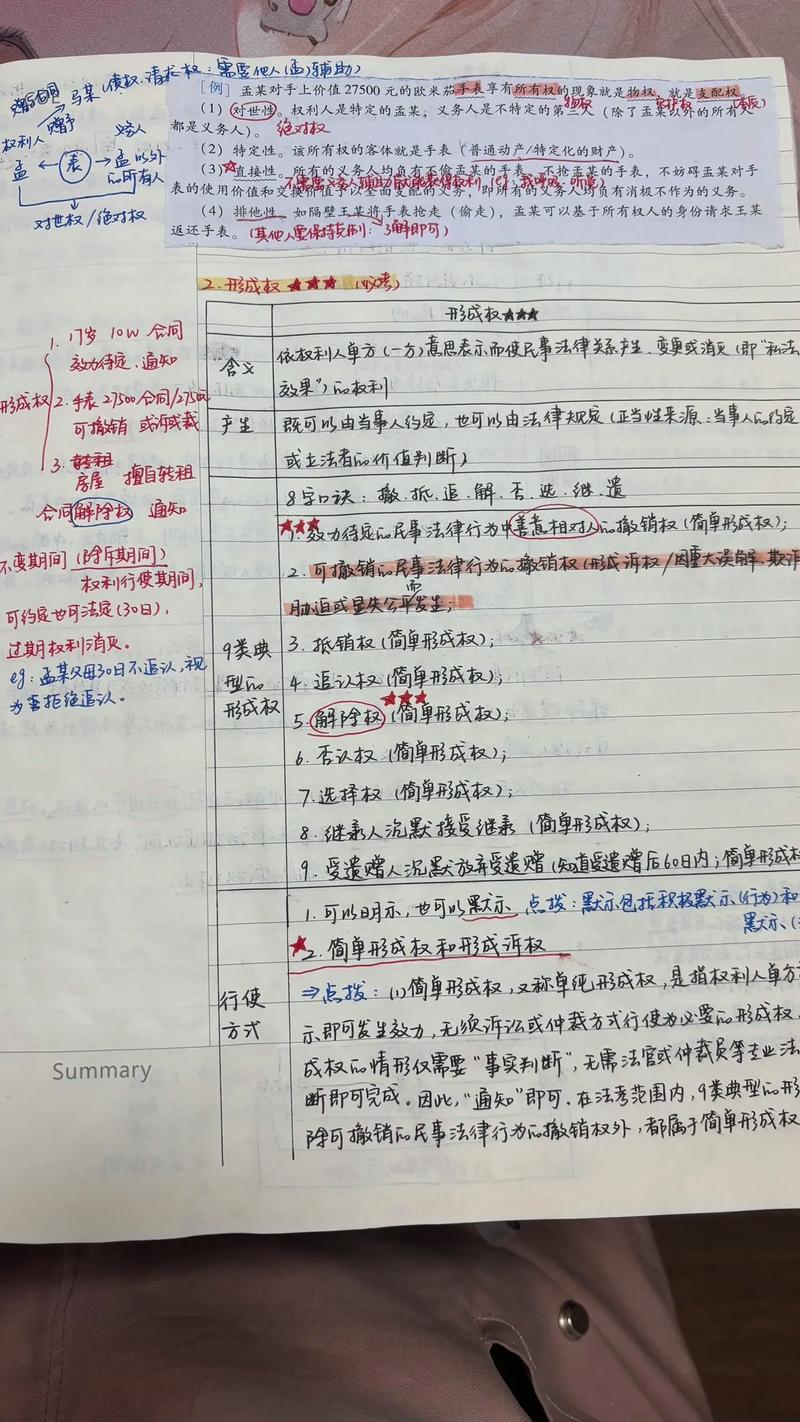 马某(债权.请求权:需要他人(孟)辅助)
赠与
权利人
孟 ← 表 → 孟以外的所有人
对世权/绝对权
[例] 孟某对手上价值 27500 元的欧米茄手表享有所有权的现象就是物权,就是支配权。
(1)对世性。权利人是特定的孟某,义务人是不特定的第三人(除了孟某以外的所有人
都是义务人)。绝对权
(2)特定性。该所有权的客体就是手表(普通动产/特定化的财产)。
(3)直接性。所有的义务人均负有不偷孟某的手表、不抢孟某的手表,不妨碍孟某对手
表的使用价值和交换价值予以全面支配的义务,即所有的义务人均负有消极不作为的义务。
(4)排他性。如隔壁王某将手表抢走(偷走),孟某可以基于所有权人的身份请求王某
返还手表。(其他人要保持克制:了解即可)
2.形成权 ★★★ (必考)
形成权
1. 17岁 10W 合同
效力待定、通知
2. 手表 27500合同/275元
可撤销 或诉或裁
3. 转租
房屋 擅自转租
合同解除权 通知
不变期间 (除斥期间)
权利行使期间,
可约定也可法定(30日),
过期权利消灭。
eg:孟某父母30日不追认,视
为拒绝追认。
形成权★★★
含义
依权利人单方(一方)意思表示而使民事法律关系产生、变更或消灭(即"私法
效果")的权利
产生
既可以由当事人约定,也可以由法律规定(正当性来源:当事人的约定
或立法者的价值判断)
9类典
型的
形成权
8字口诀:撤.抵.追.解.否.选.继.遗
★★★
1. 效力待定的民事法律行为中善意相对人的撤销权(简单形成权);
2. 可撤销的民事法律行为的撤销权(形成诉权/因重大误解、欺诈
胁迫或显失公平而发生;
3. 抵销权(简单形成权);
4. 追认权(简单形成权);
★★★
5. 解除权(简单形成权);
6. 否认权(简单形成权);
7. 选择权(简单形成权);
8. 继承人沉默接受继承(简单形成权);
9. 受遗赠人沉默放弃受遗赠(知道受遗赠后60日内;简单形成权
行使
方式
1. 可以明示,也可以默示 点拨:默示包括积极默示(行为)和
默示、
★2. 简单形成权和形成诉权
⇒点拨:(1)简单形成权,又称单纯形成权,是指权利人单方
示即可发生效力,无须诉讼或仲裁方式行使为必要的形成权,
成权的情形仅需要"事实判断",无需法官或仲裁员等专业法
断即可完成。因此,"通知"即可.在法考范围内,9类典型的形
除可撤销的民事法律行为的撤销权外,都属于简单形成权
Summary